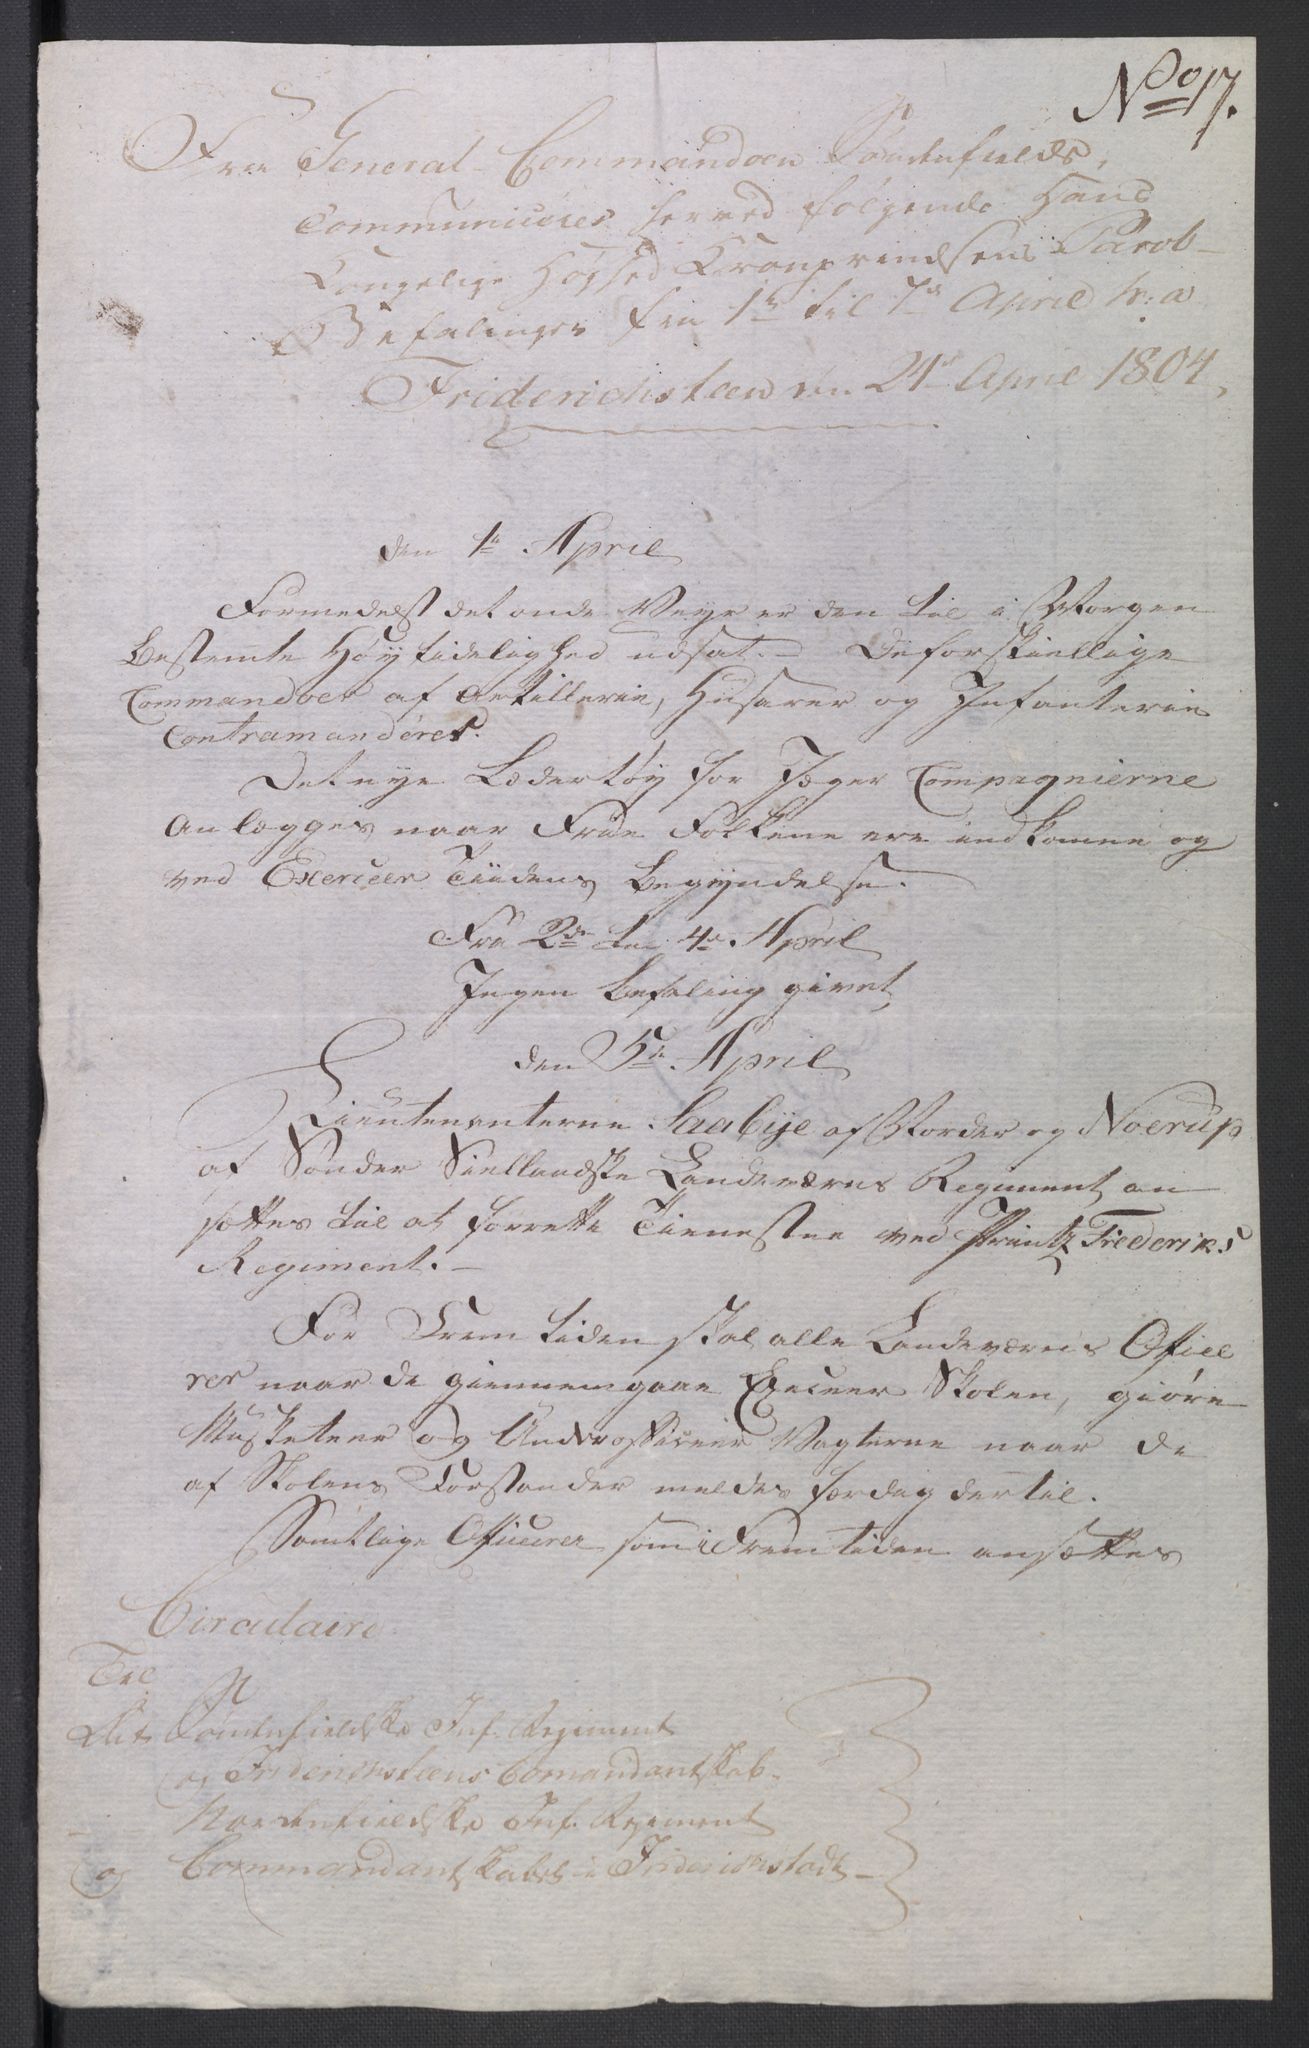 No 17.
Fra General-Commandoen Søndenfields,
Communiceres herved følgende Hans
Kongelige Høyhed Kronprindsens Parol-
Befalinger fra 1te til 7de April h: a:
Friderichsteen den 21de April 1804,
den 1te April
Formedelst det onde Veyr er den til i Morgen
bestemte Høytidelighed udsat. – De forskiellige
Commandoer af Artillerie, Husarer og Infanterie
Contramanderes.
Det nye Ledertøy for Jæger Compagnierne
anlægges naar Frie Folkene ere indkomne og
ved Exerceer Tiidens Begyndelse.
Fra 2de til 4de April
Ingen Befaling givet
den 5te April
Lieutenanterne Saabye af Norder og Noerup
af Sønder Siellandske Landeværns Regiment an
sættes til at forrette Tienesten ved Printz Frederiks
Regiment. –
For Frem tiden skal alle Landeværns Officee
rer naar de giennemgaae Exerceer Skolen, giøre
Musketeer og Underofficeer Vagterne naar de
af Skolens Forstander meldes færdig dertil.
Samtlige Officerer som i Fremtiden ansættes
Circulaire
Til
Det Søndenfieldske Inf. Regiment
og Friderichsteens Comandantskab.
Nordenfieldske Inf. Regiment
og Commandantskabet i Friderichstadt –